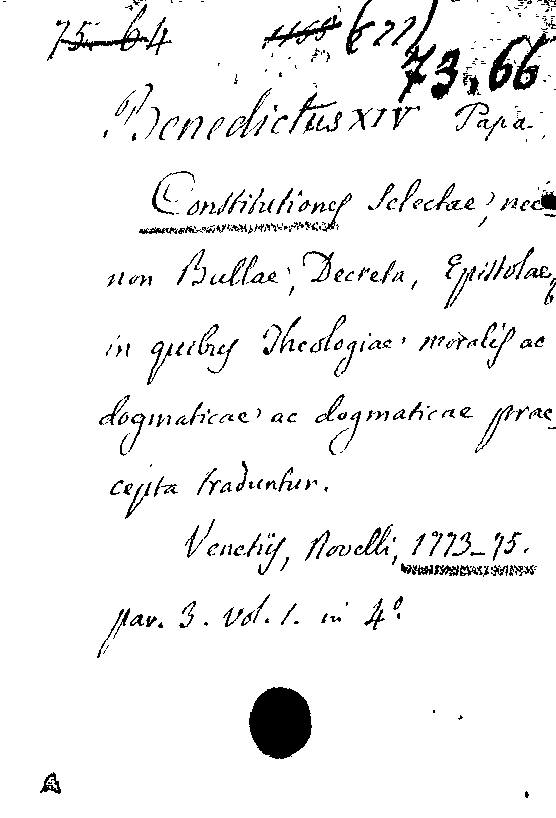 75. 64 1168 (277)
73.66
Benedictus XIV Papa.
Constitutiones Selectae, nec
non Bullae, Decreta, Epistolae,
in quibus Theologiae moralis ac
dogmaticae ac dogmaticae prae_
cepta traduntur.
Venetiis, Novelli, 1773_75.
par. 3. vol. 1. in 4.º